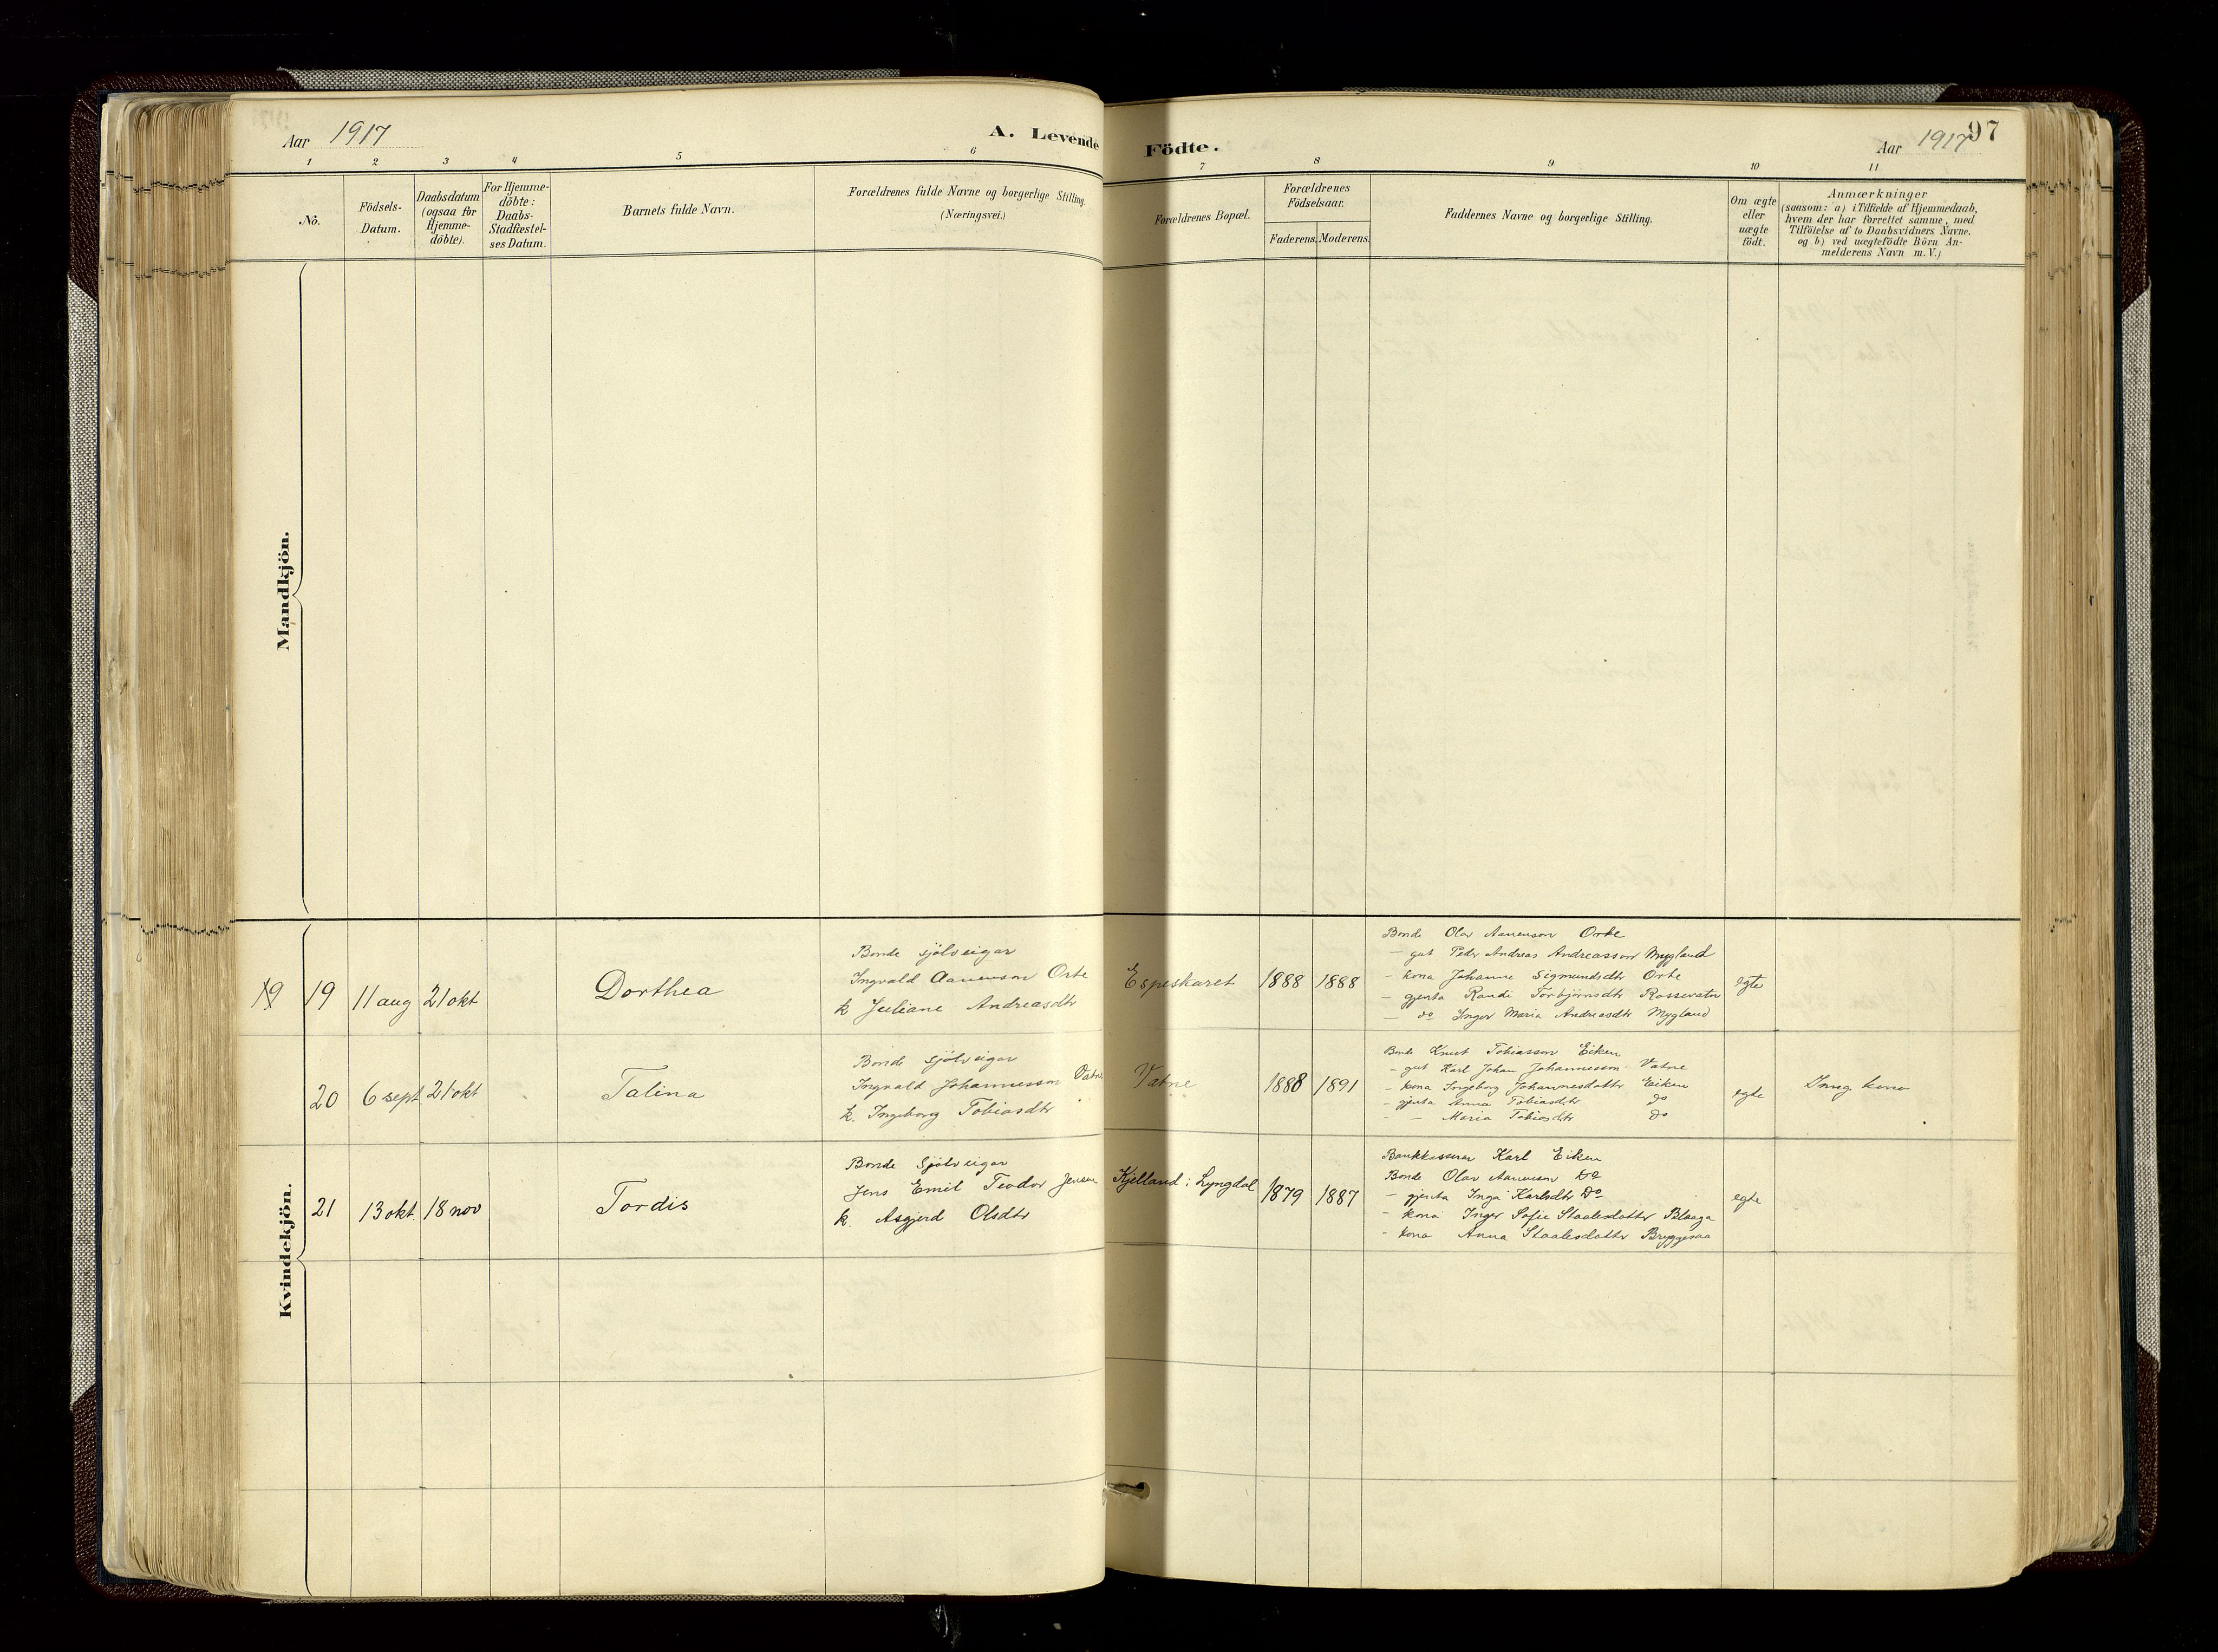 Aar 1917
A. Levende Födte.
Aar 1917
97
1 2 3 4 5 6 7 8 9 10 11
No.
Födsels-
Datum.
Daabsdatum
(ogsaa for
Hjemme-
döbte).
For Hjemme-
döbte:
Daabs-
Stadfæstel-
ses Datum.
Barnets fulde Navn.
Forældrenes fulde Navne og borgerlige Stilling.
(Næringsvei.)
Forældrenes Bopæl.
Forældrenes
Födselsaar.
Faderens. Moderens.
Faddernes Navne og borgerlige Stilling.
Om ægte
eller
uægte
födt.
Anmærkninger
(saasom: a) i Tilfælde af Hjemmedaab,
hvem der har forrettet samme, med
Tilföielse af to Daabsvidners Navne.
og b) ved uægtefödte Börn An-
melderens Navn m.V.)
Mandkjön.
Kvindekjön.
19 19 11 aug 21 okt Dorthea
Bonde sjölveigar
Ingvald Aanenson Orke
k Juliane Andreasdtr
Espeskaret 1888 1888
Bonde Olav Aanenson Orke
- gut Peder Andreas Andreasson Mygland
- kona Johanne Sigmundsdtr Orke
- gjenta Randi Torbjörnsdtr Rossevatn
- do Inger Maria Andreasdtr Mygland
egte
20 6 sept 21 okt Talina
Bonde sjölveigar
Ingvald Johannesson Vatne
k. Ingeborg Tobiasdtr
Vatne 1888 1891
Bonde Knut Tobiasson Eiken
- gut Karl Johan Johannesson Vatne
- kona Ingeborg Johannesdatter Eiken
- gjenta Anna Tobiasdtr do
- - Maria Tobiasdtr Do
egte
21 13 okt. 18 nov Tordis
Bonde Sjölveigar
Jens Emil Teodor Jensen
k. Asgjerd Olsdtr
Kjelland i Lyngdal 1879 1887
Bankkasserar Karl Eiken
Bonde Olav Aanenson Do
- gjenta Inga Karlsdtr Do
- kona Inger Sofie Staalesdatter Blaaga
- kona Anna Staalesdatter Bryggesaa
egte